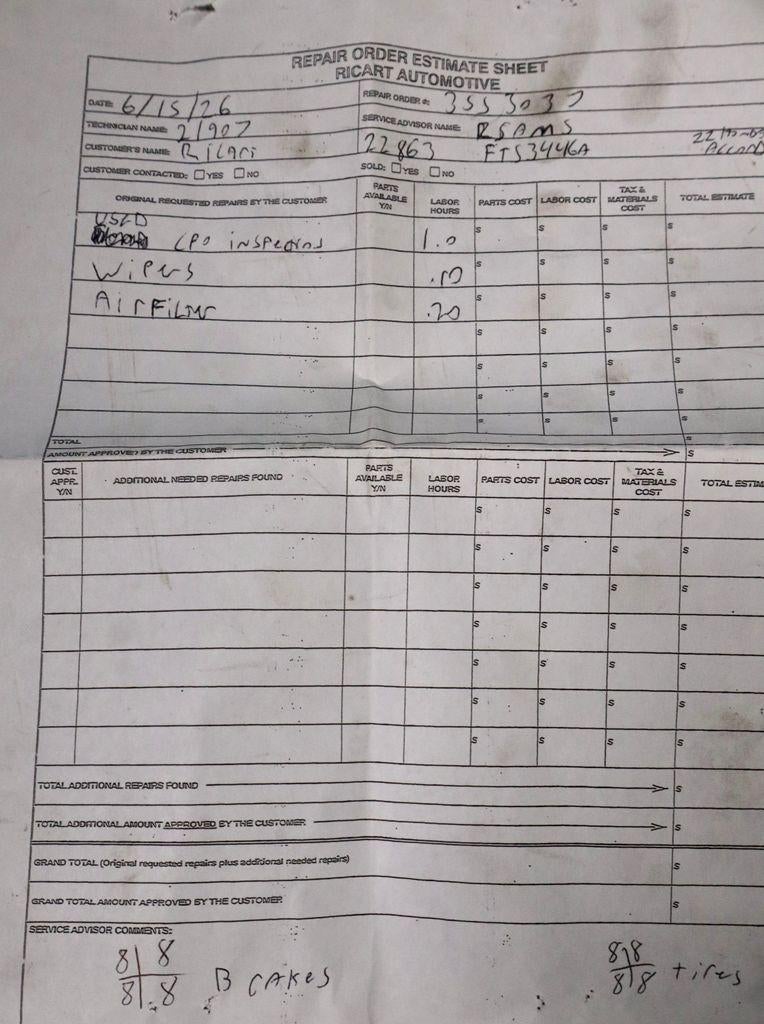 REPAIR ORDER ESTIMATE SHEET
RICART AUTOMOTIVE
DATE: 6/15/26 REPAIR ORDER #:
TECHNICIAN NAME: 21907 SERVICE ADVISOR NAME: RSAMS
CUSTOMER'S NAME: Ricart 22863 FTS3446A
CUSTOMER CONTACTED: YES NO SOLD: YES NO
ORIGINAL REQUESTED REPAIRS BY THE CUSTOMER PARTS AVAILABLE Y/N LABOR HOURS PARTS COST LABOR COST TAX & MATERIALS COST TOTAL ESTIMATE
USED
CPO inspections 1.0 $ $ $ $
Wipers .10 $ $ $ $
Air Filter .20 $ $ $ $
$ $ $ $
$ $ $ $
$ $ $ $
$ $ $ $
TOTAL $
AMOUNT APPROVED BY THE CUSTOMER $
CUST. APPR. Y/N ADDITIONAL NEEDED REPAIRS FOUND PARTS AVAILABLE Y/N LABOR HOURS PARTS COST LABOR COST TAX & MATERIALS COST TOTAL ESTIM
$ $ $ $
$ $ $ $
$ $ $ $
$ $ $ $
$ $ $ $
$ $ $ $
$ $ $ $
TOTAL ADDITIONAL REPAIRS FOUND $
TOTAL ADDITIONAL AMOUNT APPROVED BY THE CUSTOMER $
GRAND TOTAL (Original requested repairs plus additional needed repairs) $
GRAND TOTAL AMOUNT APPROVED BY THE CUSTOMER $
SERVICE ADVISOR COMMENTS:
8 8 8 8
8 8 Brakes 8 8 tires